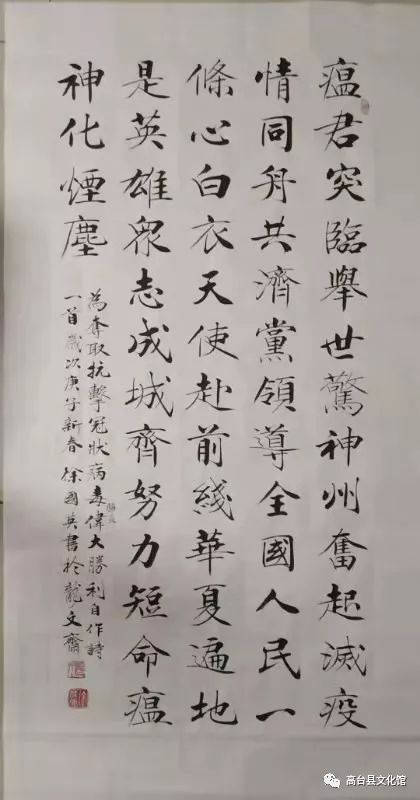 瘟君突臨舉世驚神州奮起滅疫
情同舟共濟黨領導全國人民一
條心白衣天使赴前綫華夏遍地
是英雄眾志成城齊努力短命瘟
神化煙塵
為奪取抗擊冠狀病毒偉大勝利自作詩
一首歲次庚子新春徐國英書於龍文齋
高台县文化馆